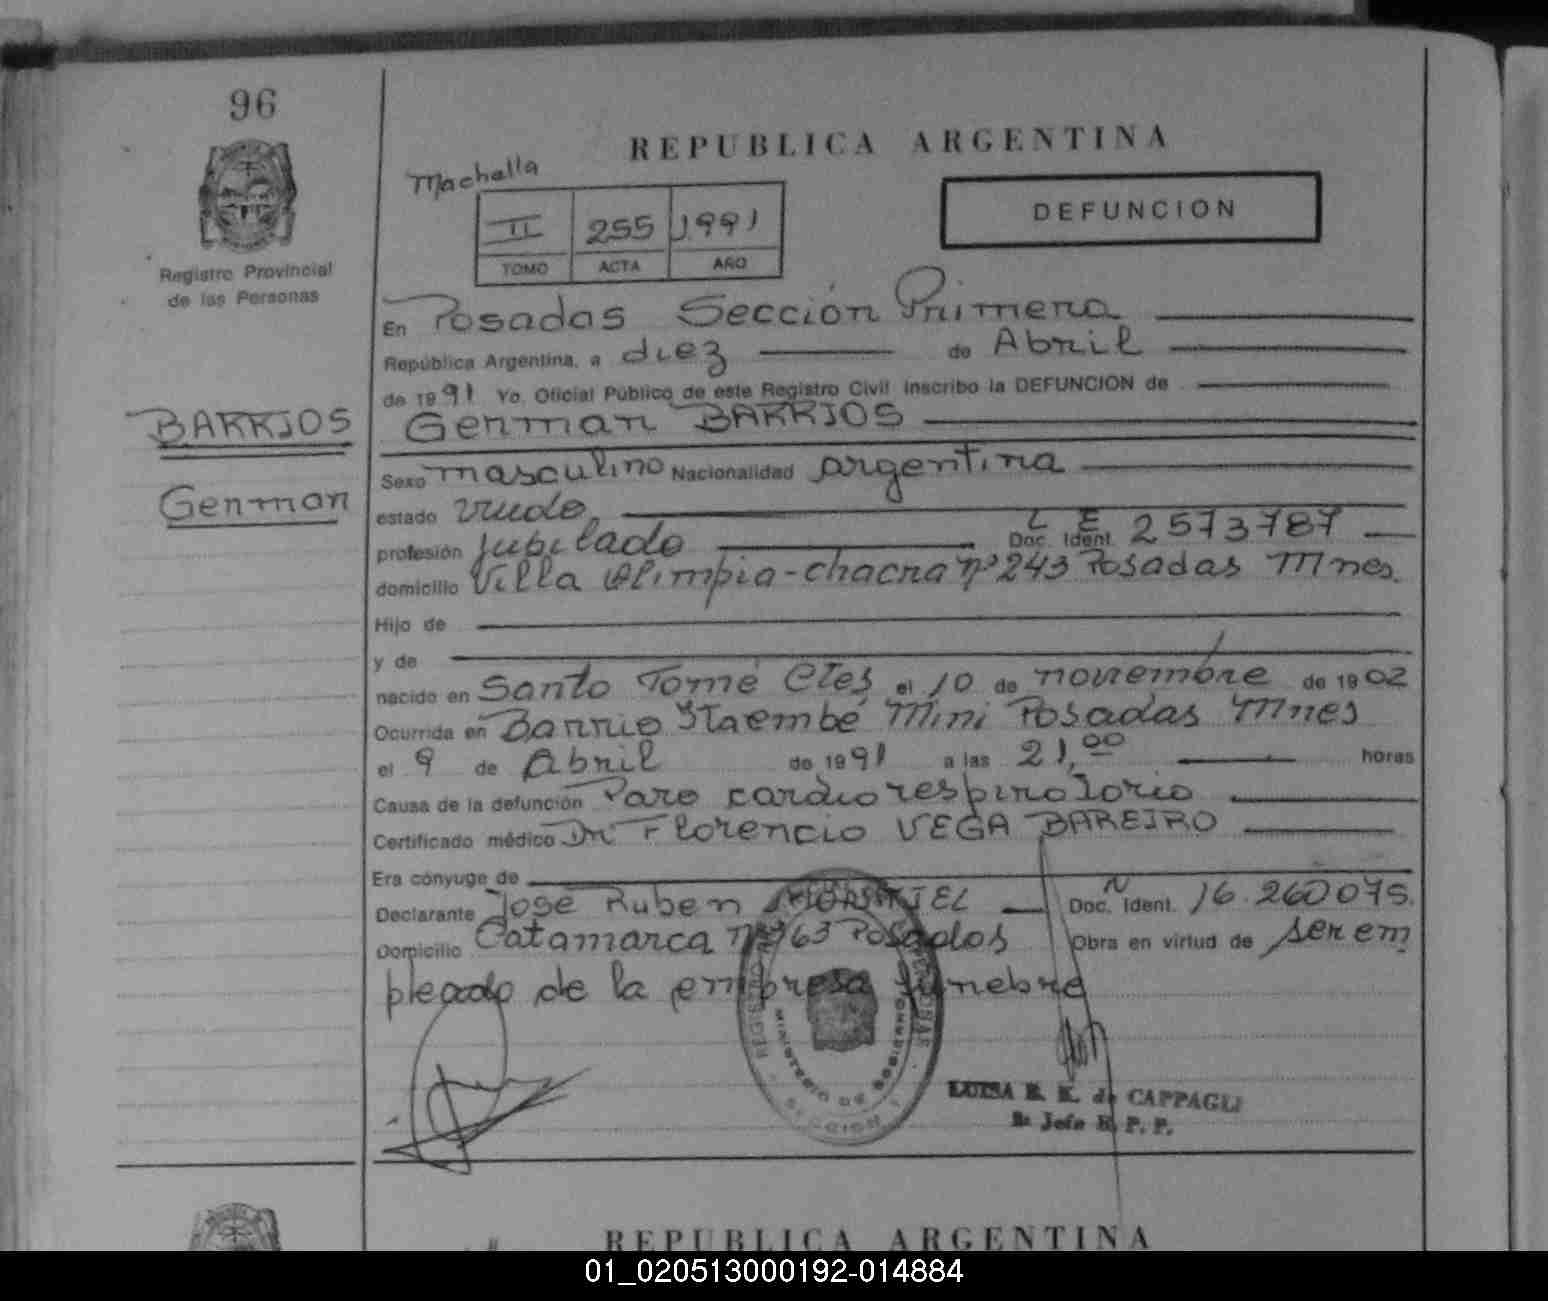 96
REPUBLICA ARGENTINA
Machella
DEFUNCION
II 255 1991
TOMO ACTA AÑO
Registro Provincial
de las Personas
En Posadas Sección Primera
República Argentina, a diez de Abril
de 1991 Yo, Oficial Público de este Registro Civil inscribo la DEFUNCION de
BARRIOS
German
German BARRIOS
Sexo masculino Nacionalidad argentina
estado viudo
profesión jubilado L E Doc. Ident. 2573787
domicilio Villa Olimpia - chacra nº 243 Posadas Mnes.
Hijo de
y de
nacido en Santo Tomé Ctes el 10 de noviembre de 1902
Ocurrida en Barrio Itaembé Mini Posadas Mnes
el 9 de Abril de 1991 a las 21,00 horas
Causa de la defunción Paro cardiorespiratorio
Certificado médico Dr Florencio VEGA BAREIRO
Era cónyuge de
Declarante José Ruben Doc. Ident. 16.260075.
Domicilio Catamarca Posadas Obra en virtud de ser em
pleado de la empresa fúnebre
MINISTERIO DE GOBIERNO
SECCION 1
LUISA E. K. de CAPPAGLI
Jefe R. P. P.
REPUBLICA ARGENTINA
01_020513000192-014884